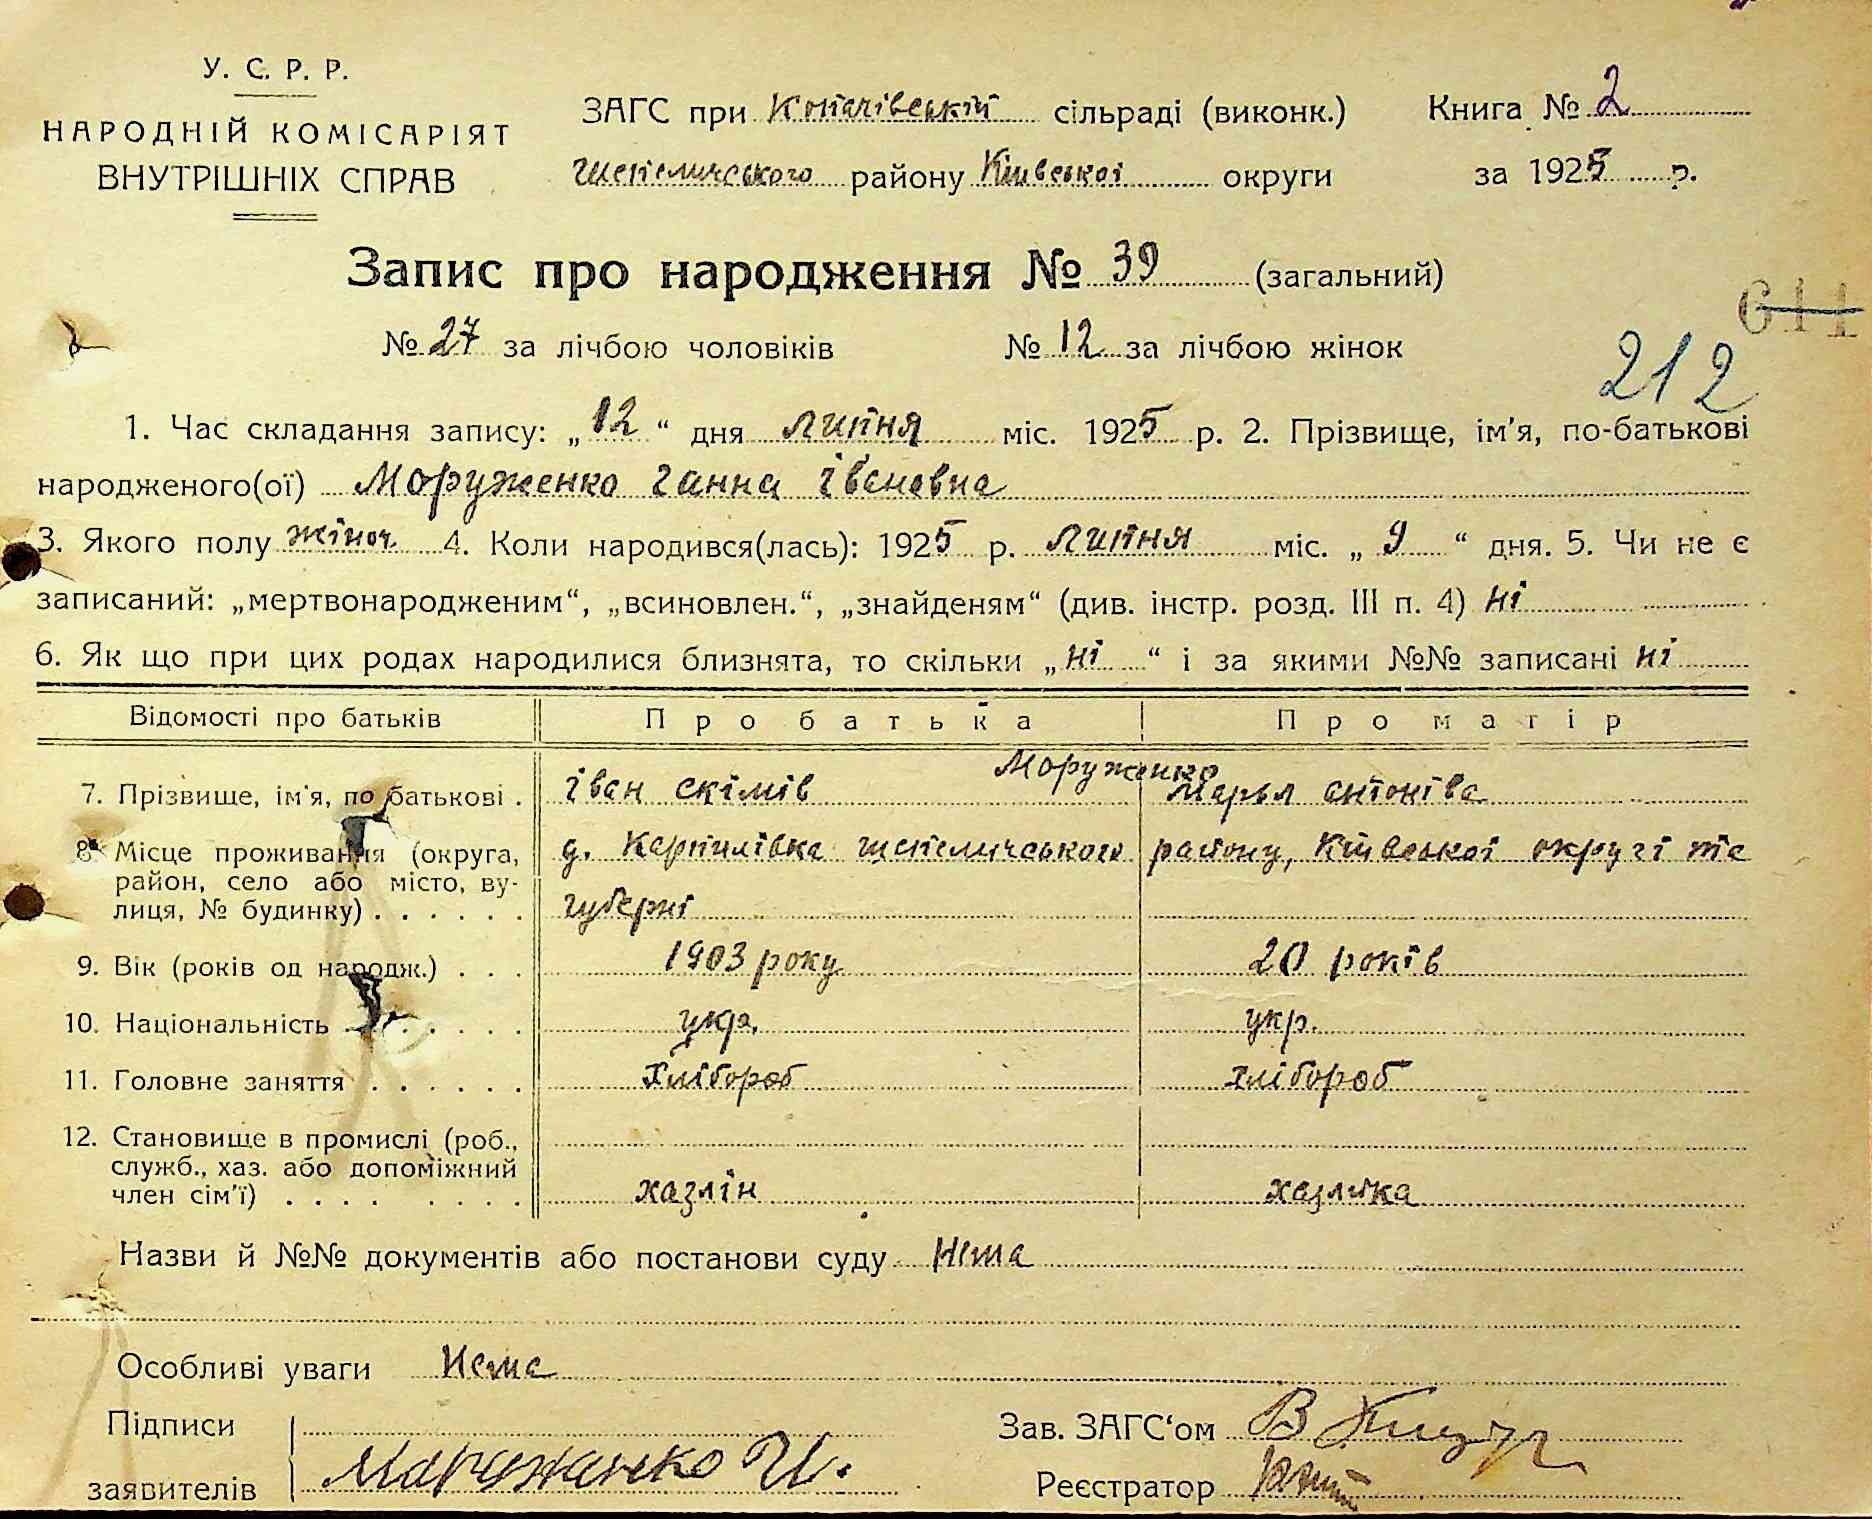 У. С. Р. Р.
НАРОДНІЙ КОМІСАРІЯТ
ВНУТРІШНІХ СПРАВ
ЗАГС при Копачівській сільраді (виконк.)
шепеличського району Київської округи
Книга № 2
за 1925 р.
Запис про народження № 39 (загальний)
№ 27 за лічбою чоловіків № 12 за лічбою жінок
611
212
1. Час складання запису: „12“ дня липня міс. 1925 р. 2. Прізвище, ім'я, по-батькові
народженого(ої) Моруженко ганна івановна
3. Якого полу жіноч 4. Коли народився(лась): 1925 р. липня міс. „9“ дня. 5. Чи не є
записаний: „мертвонародженим“, „всиновлен.“, „знайденям“ (див. інстр. розд. III п. 4) ні
6. Як що при цих родах народилися близнята, то скільки „ні“ і за якими №№ записані ні
Відомості про батьків Про батька Про матір
Моруженко
7. Прізвище, ім'я, по батькові . іван скімів марья антоніва
8. Місце проживання (округа, д. Карпилівка шепеличського району, Київської округі
район, село або місто, ву-
лиця, № будинку) . . . . . . губерні
9. Вік (років од народж.) . . . 1903 року 20 років
10. Національність . . . . . . укр. укр.
11. Головне заняття . . . . . . хлібороб хлібороб
12. Становище в промислі (роб.,
служб., хаз. або допоміжний
член сім'ї) . . . . . . . . хазяін хазяйка
Назви й №№ документів або постанови суду Нема
Особливі уваги Нема
Підписи
заявителів Маружанко И.
Зав. ЗАГС‘ом В
Реєстратор